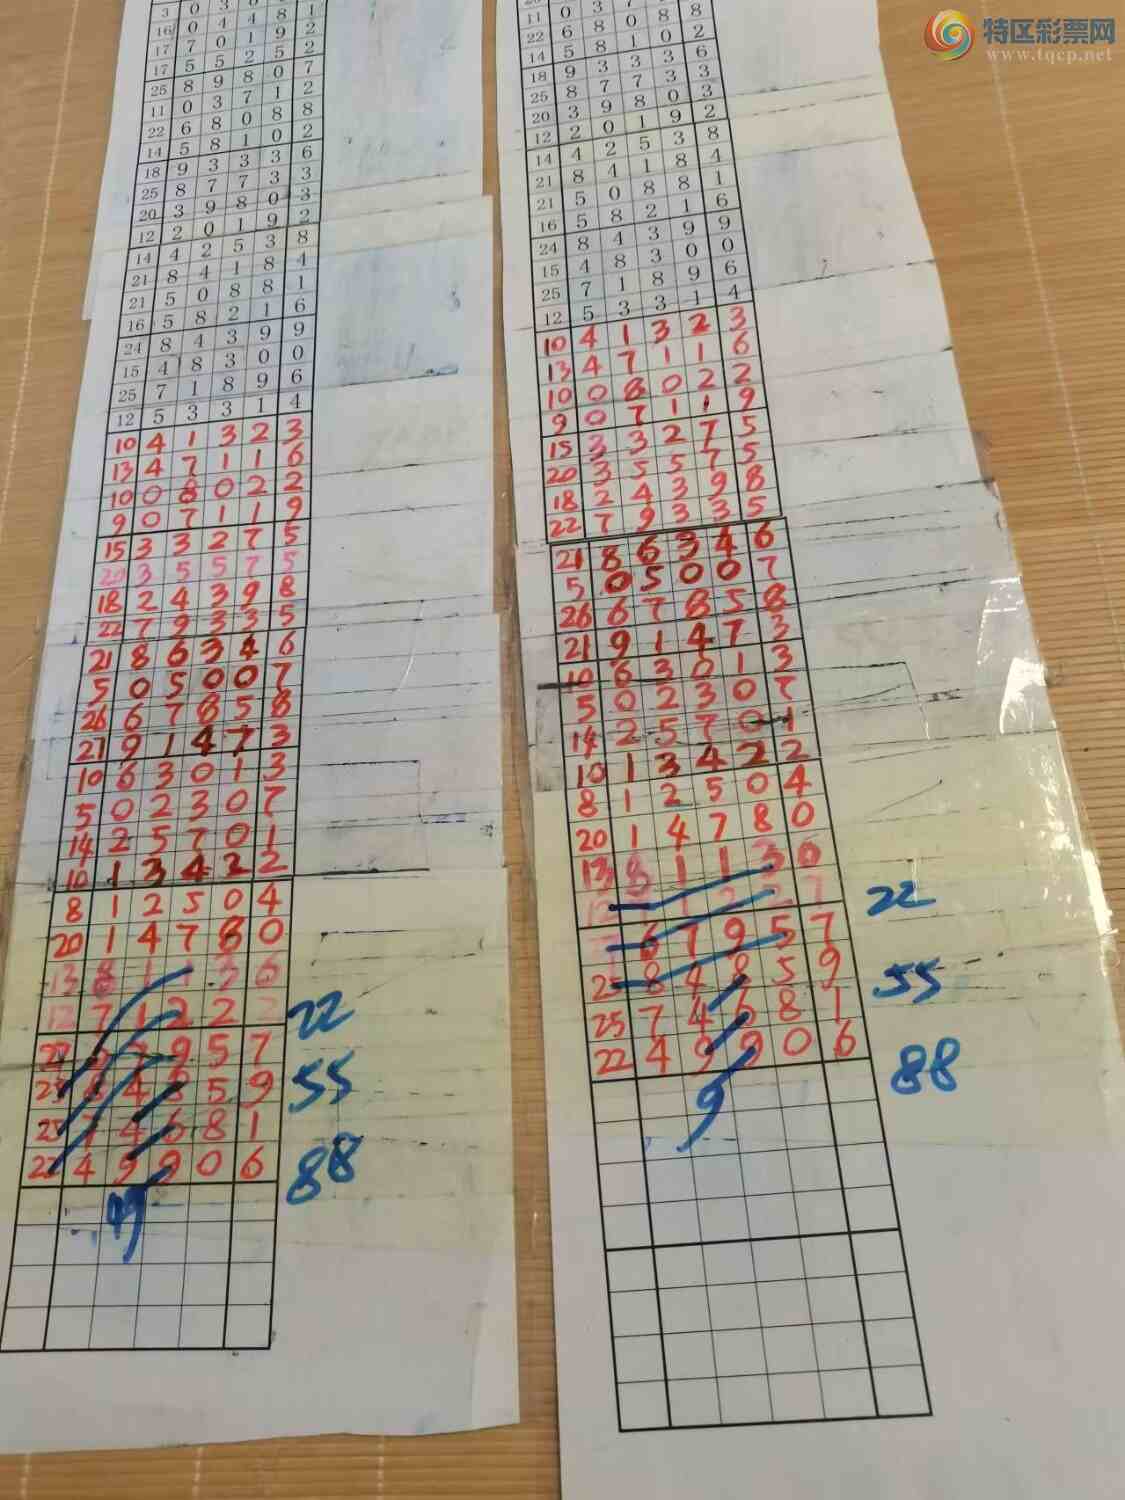 3 0 3
16 0 4 4 8 1
17 7 0 1 9 2
17 5 5 2 5 2
25 8 9 8 0 7
11 0 3 7 1 2
22 6 8 0 8 8
14 5 8 1 0 2
18 9 3 3 3 6
25 8 7 7 3 3
20 3 9 8 0 3
12 2 0 1 9 2
14 4 2 5 3 8
21 8 4 1 8 4
21 5 0 8 8 1
16 5 8 2 1 6
24 8 4 3 9 9
15 4 8 3 0 0
25 7 1 8 9 6
12 5 3 3 1 4
10 4 1 3 2 3
13 4 7 1 1 6
10 0 8 0 2 2
9 0 7 1 1 9
15 3 3 2 7 5
20 3 5 5 7 5
18 2 4 3 9 8
22 7 9 3 3 5
21 8 6 3 4 6
5 0 5 0 0 7
26 6 7 8 5 8
21 9 1 4 7 3
10 6 3 0 1 3
5 0 2 3 0 7
14 2 5 7 0 1
10 1 3 4 2 2
8 1 2 5 0 4
20 1 4 7 8 0
13 8 1 1 3 6
12 7 1 2 2
22
9 5 7
4 8 5 9
55
25 7 4 6 8 1
22 4 9 9 0 6
88
特区彩票网
www.tqcp.net
11 0 3 7
22 6 8 0 8 8
14 5 8 1 0 2
18 9 3 3 3 6
25 8 7 7 3 3
20 3 9 8 0 3
12 2 0 1 9 2
14 4 2 5 3 8
21 8 4 1 8 4
21 5 0 8 8 1
16 5 8 2 1 6
24 8 4 3 9 9
15 4 8 3 0 0
25 7 1 8 9 6
12 5 3 3 1 4
10 4 1 3 2 3
13 4 7 1 1 6
10 0 8 0 2 2
9 0 7 1 1 9
15 3 3 2 7 5
20 3 5 5 7 5
18 2 4 3 9 8
22 7 9 3 3 5
21 8 6 3 4 6
5 0 5 0 0 7
26 6 7 8 5 8
21 9 1 4 7 3
10 6 3 0 1 3
5 0 2 3 0 7
14 2 5 7 0 1
10 1 3 4 2 2
8 1 2 5 0 4
20 1 4 7 8 0
13 8 1 1 3 6
12 2 2 7
22
6 7 9 5 7
25 8 4 8 5 9
55
25 7 4 6 8 1
22 4 9 9 0 6
88
9